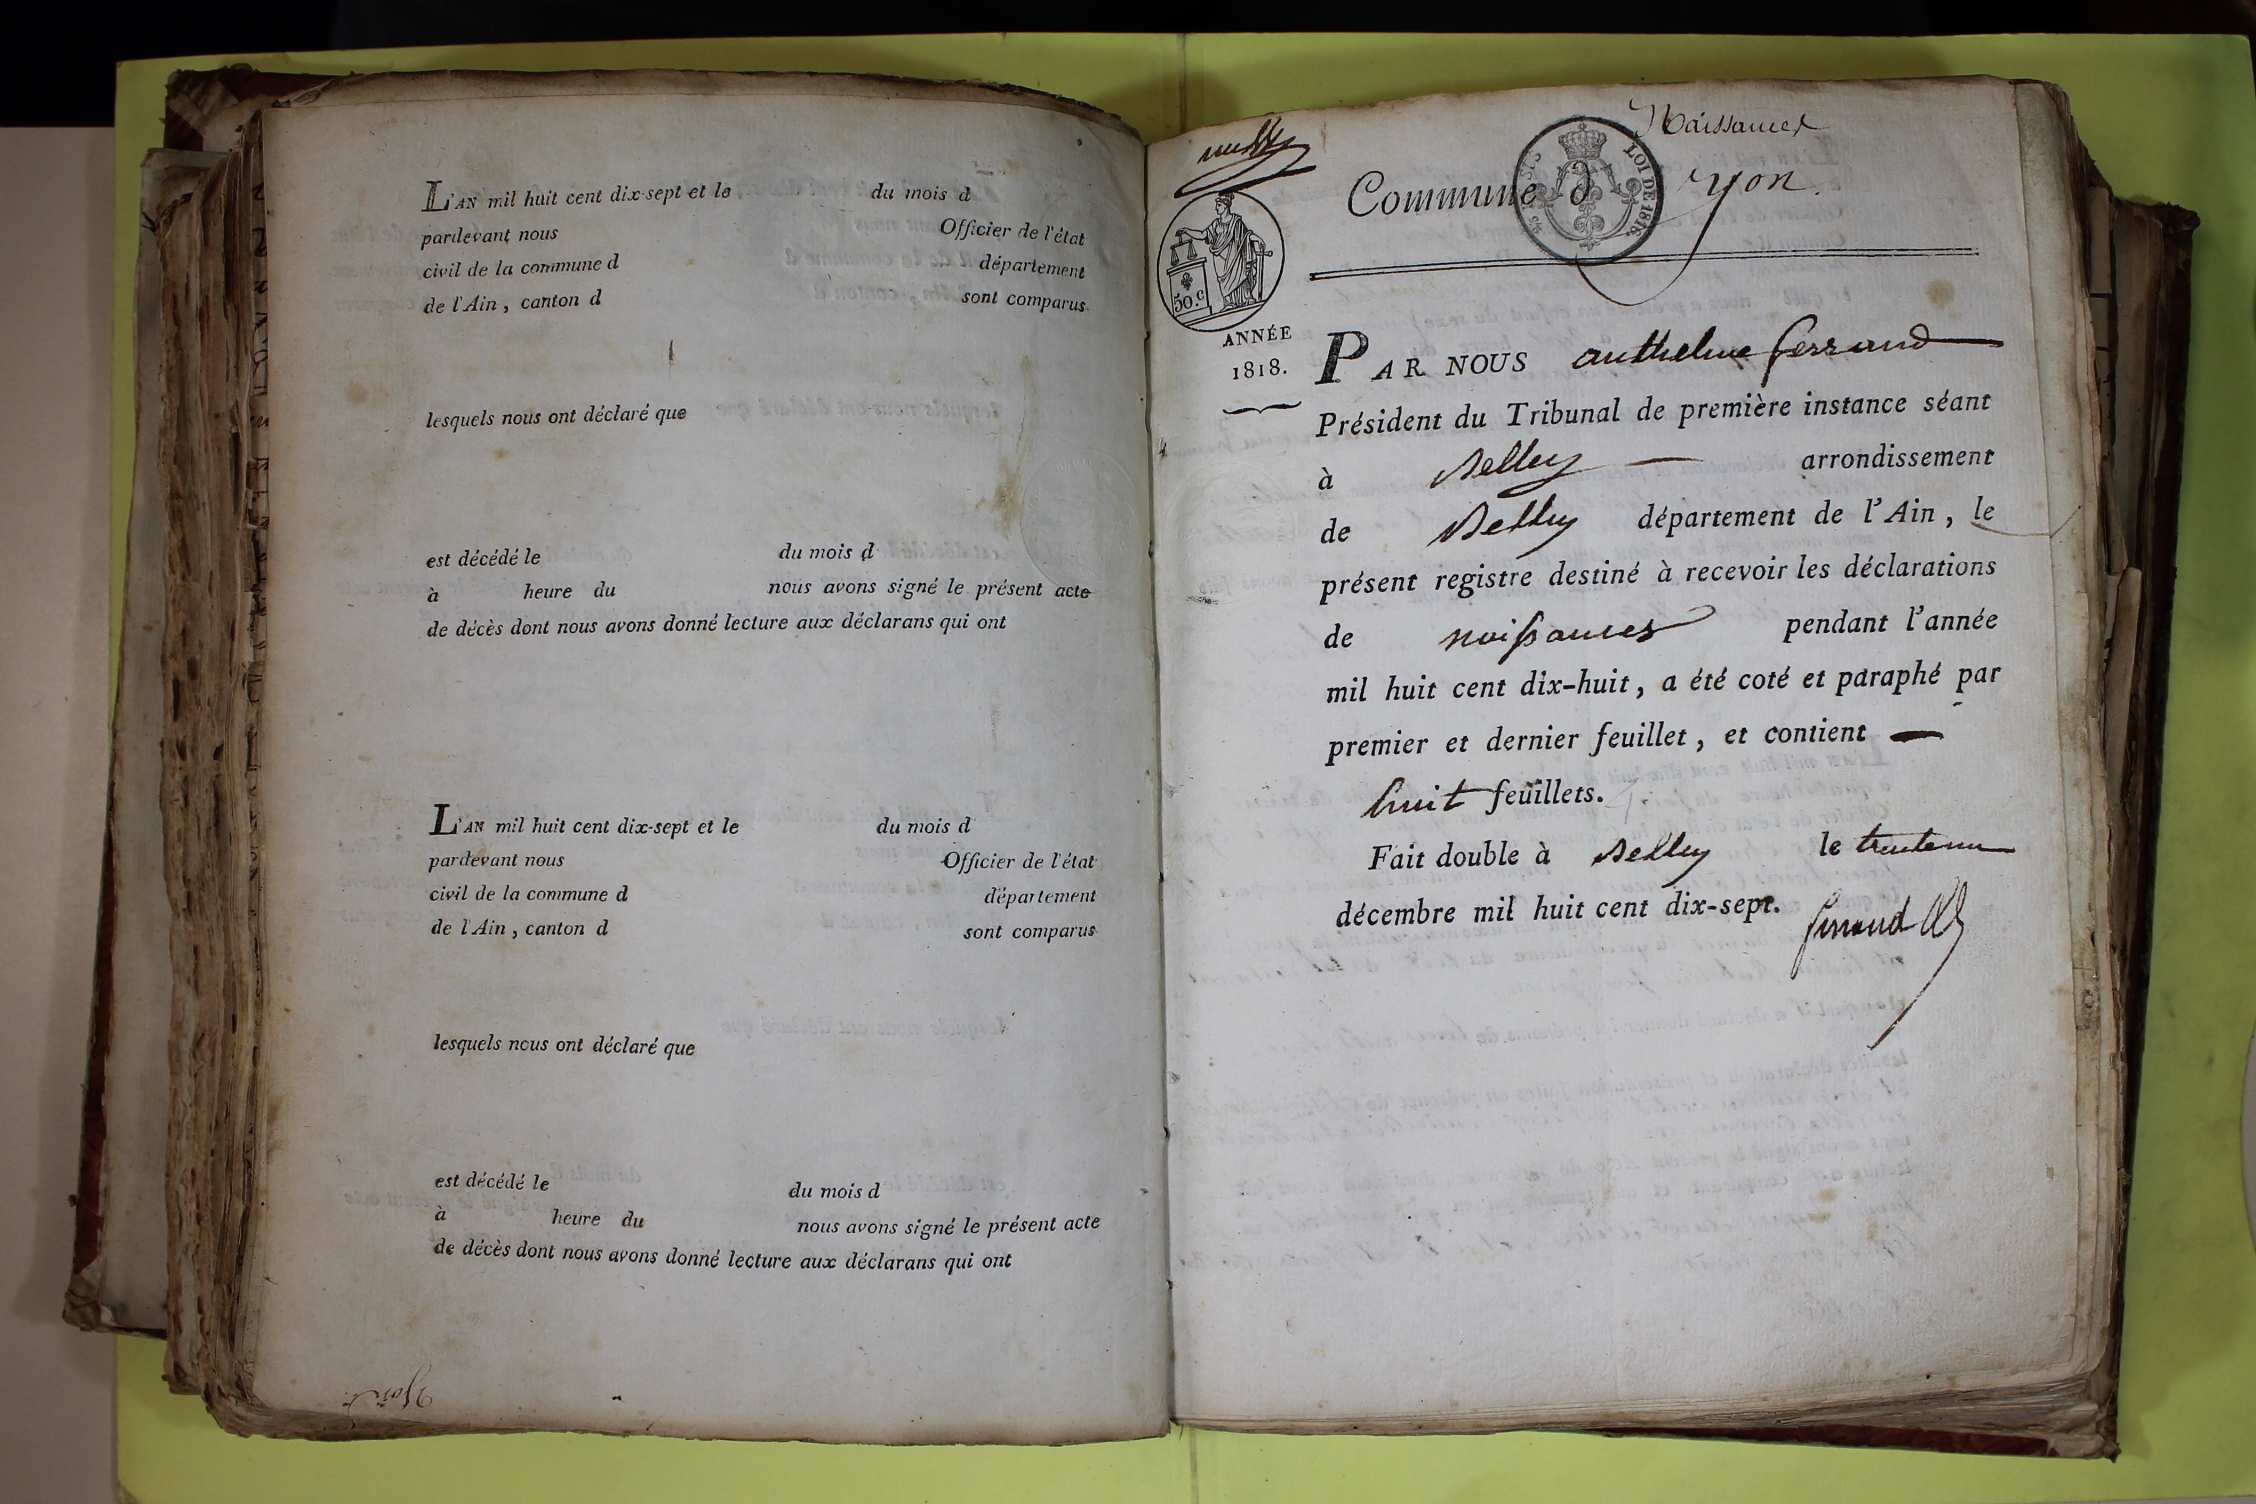 L'AN mil huit cent dix-sept et le du mois d
pardevant nous Officier de l'état
civil de la commune d département
de l'Ain, canton d sont comparus
lesquels nous ont déclaré que
est décédé le du mois d
à heure du nous avons signé le présent acte
de décès dont nous avons donné lecture aux déclarans qui ont
L'AN mil huit cent dix-sept et le du mois d
pardevant nous Officier de l'état
civil de la commune d département
de l'Ain, canton d sont comparus
lesquels nous ont déclaré que
est décédé le du mois d
à heure du nous avons signé le présent acte
de décès dont nous avons donné lecture aux déclarans qui ont
Naissances
LOI DE 1816.
Commune d'yon.
50.c
ANNÉE
1818.
PAR NOUS anthelme ferrand
Président du Tribunal de première instance séant
à Belley arrondissement
de Belley département de l'Ain, le
présent registre destiné à recevoir les déclarations
de naissances pendant l'année
mil huit cent dix-huit, a été coté et paraphé par
premier et dernier feuillet, et contient
huit feuillets.
Fait double à Belley le trente un
décembre mil huit cent dix-sept.
ferrand